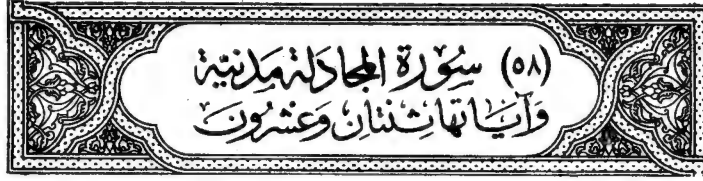 (٥٨) سُورَة المجَادَلة مَدنيّة
وَآيَاتهَا ثِنتَان وَعشرُونَ